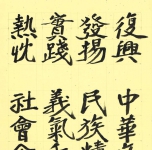 復興中華
發揚民族精
實踐義氣
熱忱社會